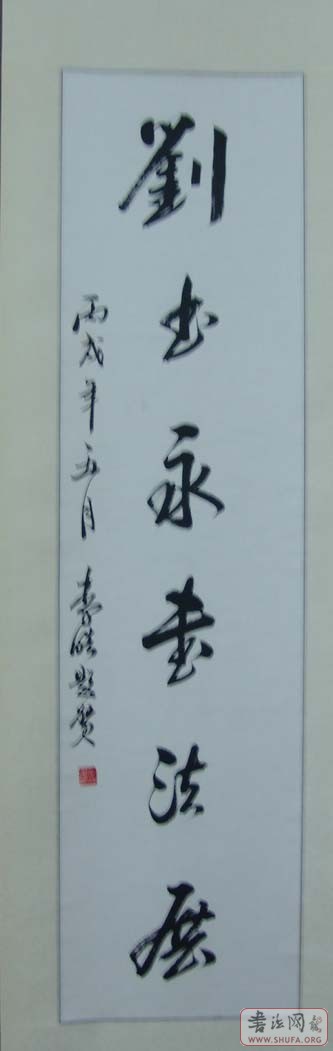 劉永書法展
丙戌年五月 李題賀
書法网
WWW.SHUFA.ORG